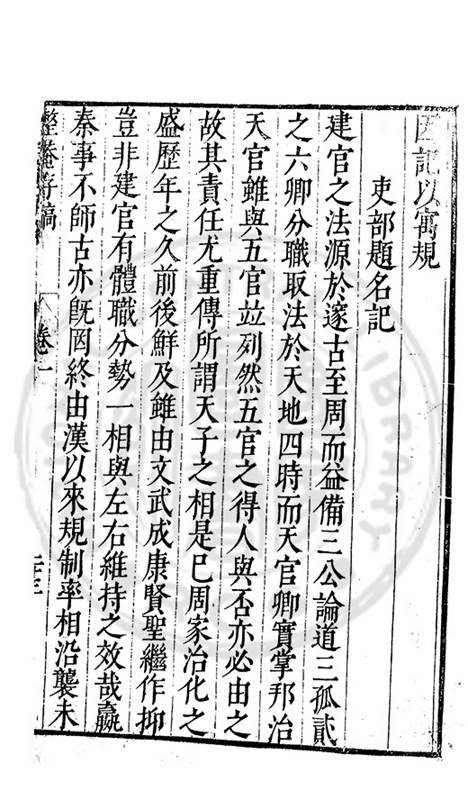 因記以寓規
吏部題名記
建官之法源於邃古至周而益備三公論道三孤貳
之六卿分職取法於天地四時而天官卿實掌邦治
天官雖與五官並列然五官之得人與否亦必由之
故其責任尤重傳所謂天子之相是已周家治化之
盛歷年之久前後鮮及雖由文武成康賢聖繼作抑
豈非建官有體職分勢一相與左右維持之效哉嬴
秦事不師古亦旣罔終由漢以來規制率相沿襲未
整菴存稿 卷一